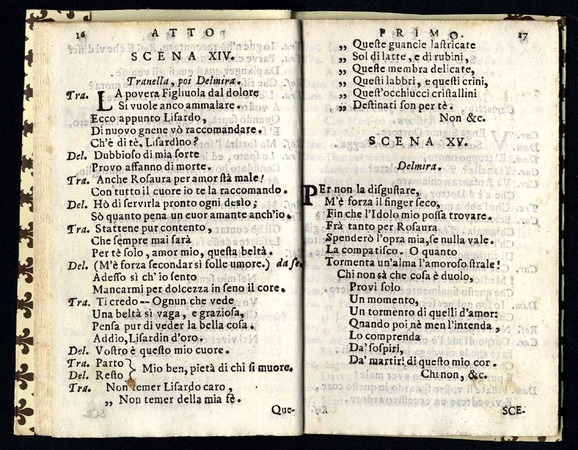 16 ATTO
SCENA XIV.
Tranella, poi Delmira.
Tra. LA povera Figliuola dal dolore
Si vuole anco ammalare.
Ecco appunto Lisardo,
Di nuovo gnene vò raccomandare.
Ch'è di tè, Lisardino?
Del. Dubbioso di mia sorte
Provo affanno di morte.
Tra. Anche Rosaura per amor stà male!
Con tutto il cuore io te la raccomando.
Del. Hò di servirla pronto ogni desìo;
Sò quanto pena un cuor amante anch'io.
Tra. Stattene pur contento,
Che sempre mai sarà
Per tè solo, amor mio, questa beltà.
Del. (M'è forza secondar sì folle umore.) da se.
Adesso sì ch'io sento
Mancarmi per dolcezza in seno il core.
Tra. Ti credo -- Ognun che vede
Una beltà sì vaga, e graziosa,
Pensa pur di veder la bella cosa.
Addio, Lisardin d'oro.
Del. Vostro è questo mio cuore.
Tra. Parto
Del. Resto } Mio ben, pietà di chi si muore.
Tra. Non temer Lisardo caro,
„ Non temer della mia fè.
Que-
PRIMO. 17
„ Queste guancie lastricate
„ Sol di latte, e di rubini,
„ Queste membra delicate,
„ Questi labbri, e questi crini,
„ Quest'occhiucci cristallini
„ Destinati son per tè.
Non &c.
SCENA XV.
Delmira.
PEr non la disgustare,
M'è forza il finger seco,
Fin che l'Idolo mio possa trovare.
Frà tanto per Rosaura
Spenderò l'opra mia, se nulla vale.
La compatisco. O quanto
Tormenta un'alma l'amoroso strale!
Chi non sà che cosa è duolo,
Provi solo
Un momento,
Un tormento di quelli d'amor:
Quando poi nè men l'intenda,
Lo comprenda
Da' sospiri,
Da' martiri di questo mio cor.
Chi non, &c.
SCE-